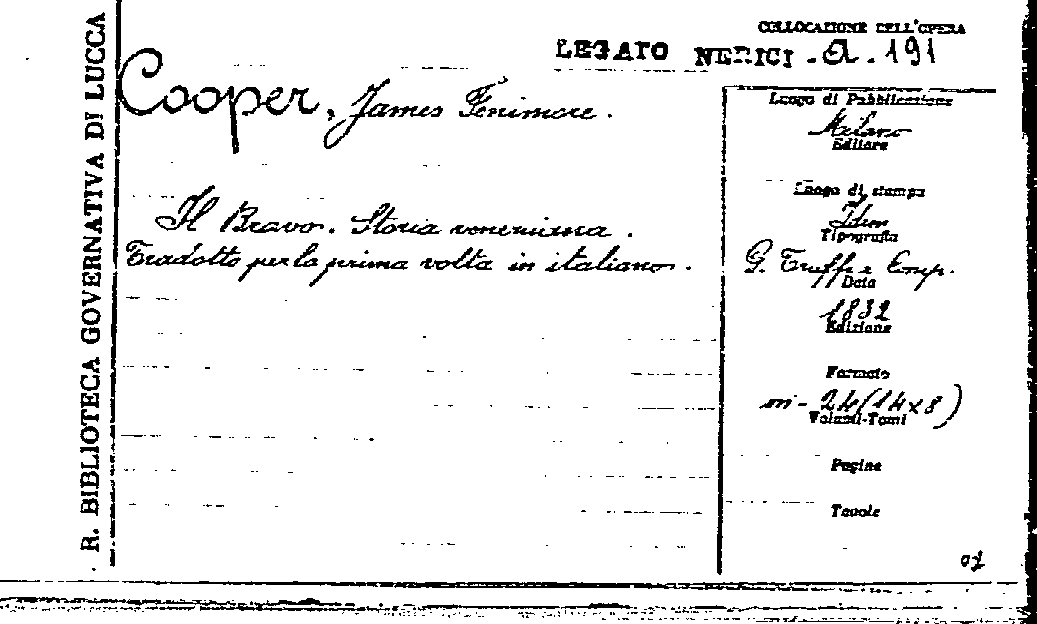 R. BIBLIOTECA GOVERNATIVA DI LUCCA
COLLOCAZIONE DELL'OPERA
LEGATO NERICI - A. 191
Cooper, James Fenimore.
Il Bravo. Storia veneziana.
Tradotto per la prima volta in italiano.
Luogo di Pubblicazione
Milano
Editore
Luogo di stampa
Idem
Tipografia
G. Truffi e Comp.
Data
1832
Edizione
Formato
in-24 (14x8)
Volumi-Tomi
Pagine
Tavole